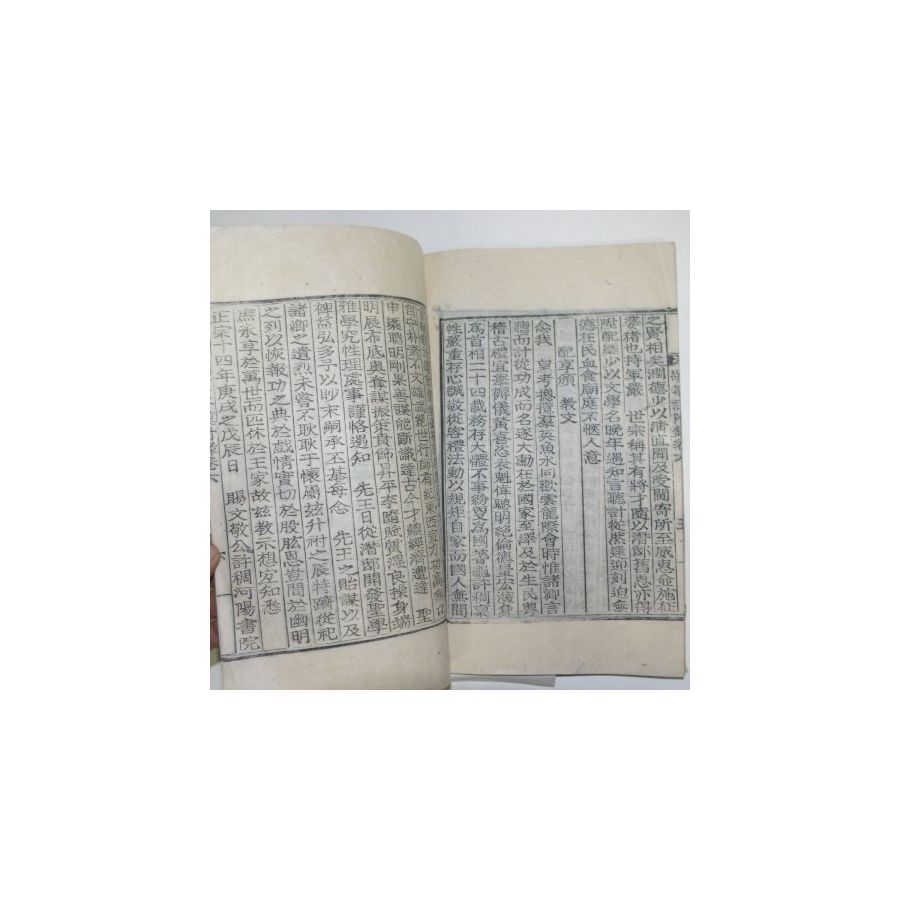 之賢相矣潤德少以淸直聞及受閫寄所至威惠並施在
婆猪也持軍嚴 世宗稱其有將才隨以潛邸舊恩亦得
陞配渠少以文學名晚年遇知言聽計從然逢迎刻迫無
德在民血食廟庭不愜人意
配享頒 敎文
念我 皇考摠攬羣英魚水同歡雲龍際會時惟諸卿言
聽而計從功成而名遂大勳在於國家至澤及於生民
稽古禮宜擧縟儀黃喜 魁偉聰明絕倫德量
爲首相二十四載務存大體不再紛更爲國蓍龜許稠稟
性嚴重存心誠敬從容禮法動以規矩自家而國人無間
聖
申槩聰明剛果善謀能斷識達古今才蘊經濟遭逢
明辰布底奧奪謀振策貴飾昇平李隨賦質溫良操身端
雅學究性理處事謹恪遇知 先王日從潛邸開發聖學
裨益弘多予以眇末嗣承丕基每念 先王之貽謀以及
諸卿之遺烈未嘗不耿耿于懷屬玆升祔之辰特躋從祀
之列以恢報功之典於戱情實切於股肱恩豈間於幽明
庶永享於萬世而匹休於王家故玆敎示想宜知悉
正宗十四年庚戌 戊辰日 賜文敬公許稠河陽書院